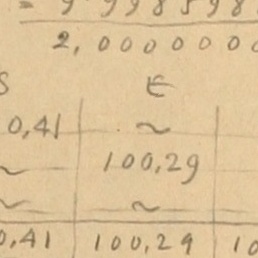 = 9.998598
2,0000000
S E
0,41 ~
~ 100,29
~ ~
0,41 100,29 10